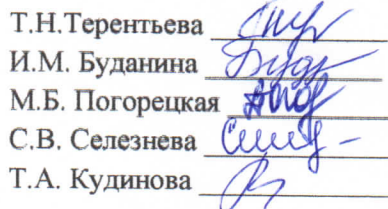 Т.Н.Терентьева
И.М. Буданина
М.Б. Погорецкая
С.В. Селезнева
Т.А. Кудинова